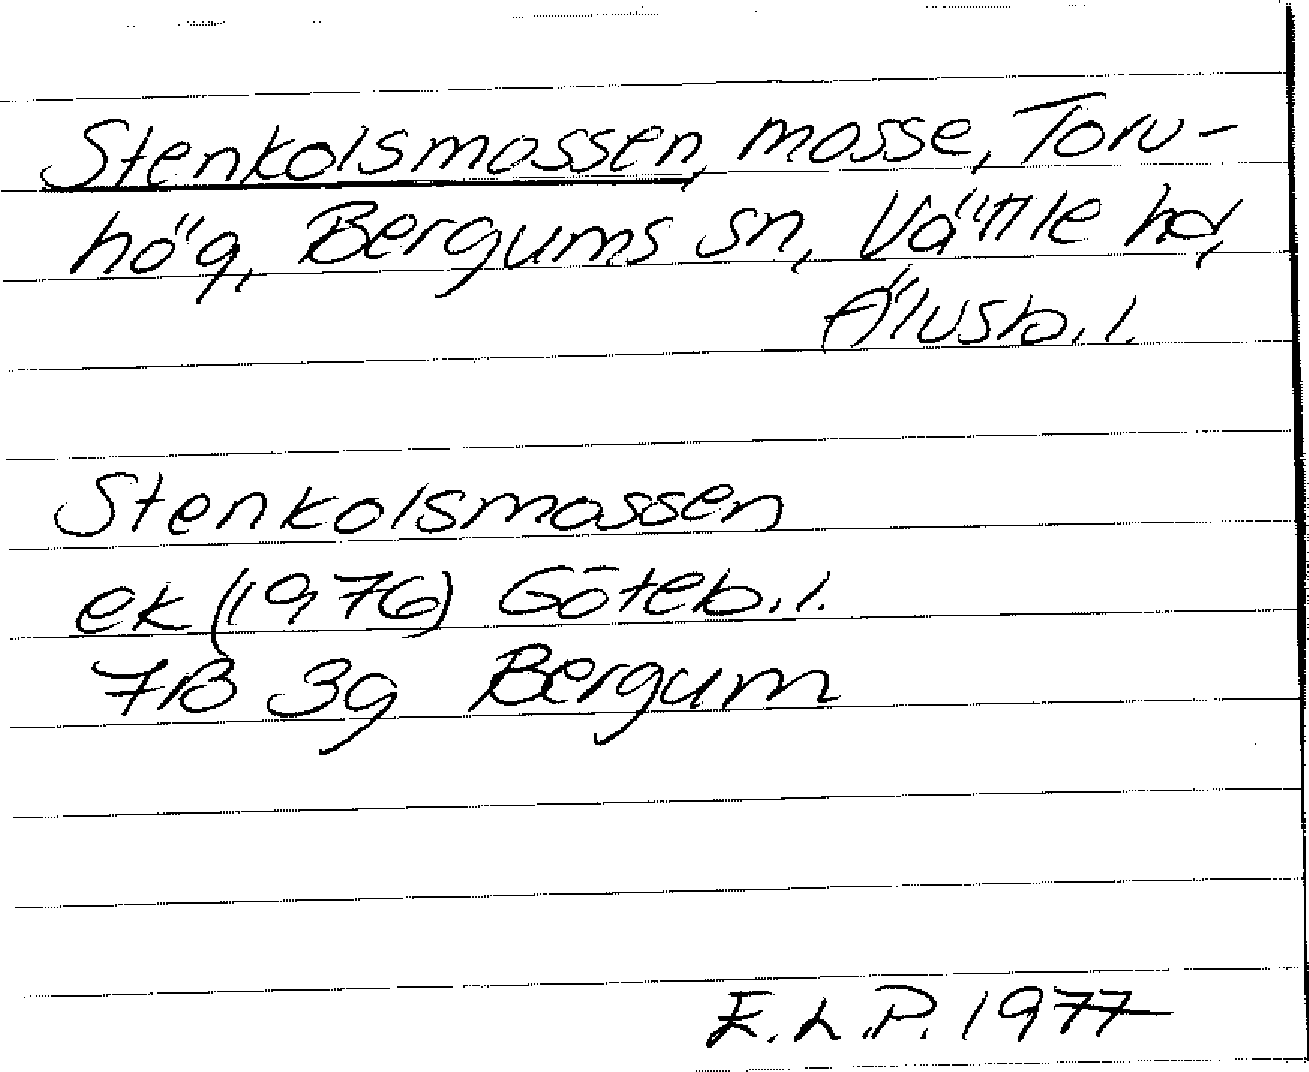 Stenkolsmossen, mosse, Torv-
hög, Bergums sn, Vättle hd,
Älvsb. l.
Stenkolsmossen
ek (1976) Göteb. l.
7B 3g Bergum
E.L.P. 1977